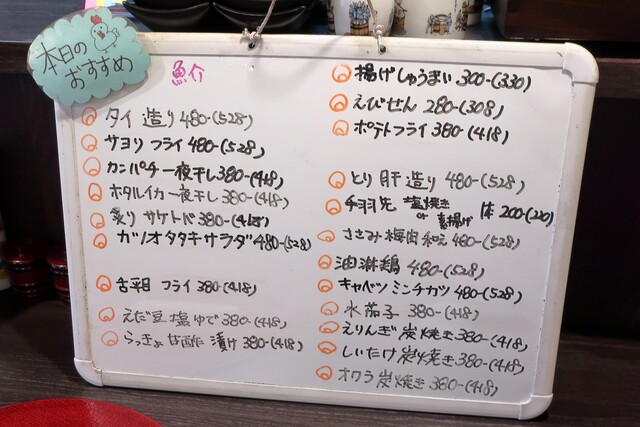 本日の
おすすめ
魚介
タイ 造り 480-(528)
サヨリ フライ 480-(528)
カンパチ一夜干し 380-(418)
ホタルイカ一夜干し 380-(418)
炙り サケトバ 380-(418)
カツオタタキサラダ 480-(528)
舌平目 フライ 380-(418)
えだ豆塩ゆで 380-(418)
らっきょ 甘酢 漬け 380-(418)
揚げしゅうまい 300-(330)
えびせん 280-(308)
ポテトフライ 380-(418)
とり 肝 造り 480-(528)
手羽先 塩焼き or 素揚げ 1本 200-(220)
ささみ梅肉和え 480-(528)
油淋鶏 480-(528)
キャベツミンチカツ 480-(528)
水茄子 380-(418)
えりんぎ炭焼き 380-(418)
しいたけ炭焼き 380-(418)
オクラ炭焼き 380-(418)